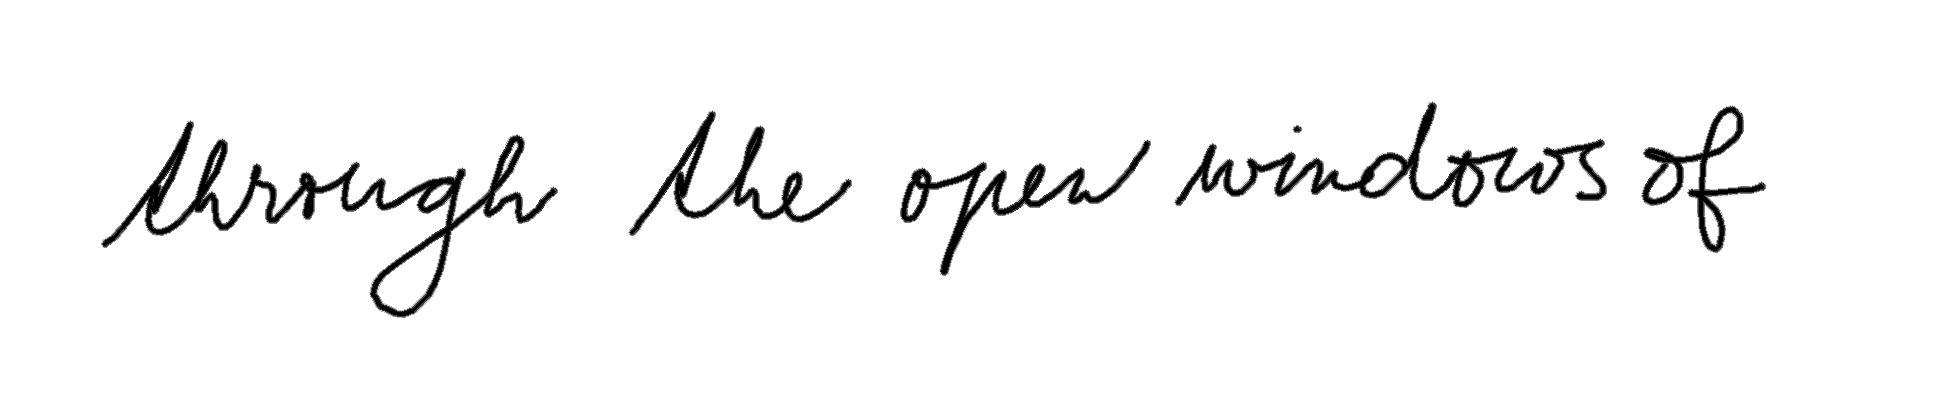 through the open windows of